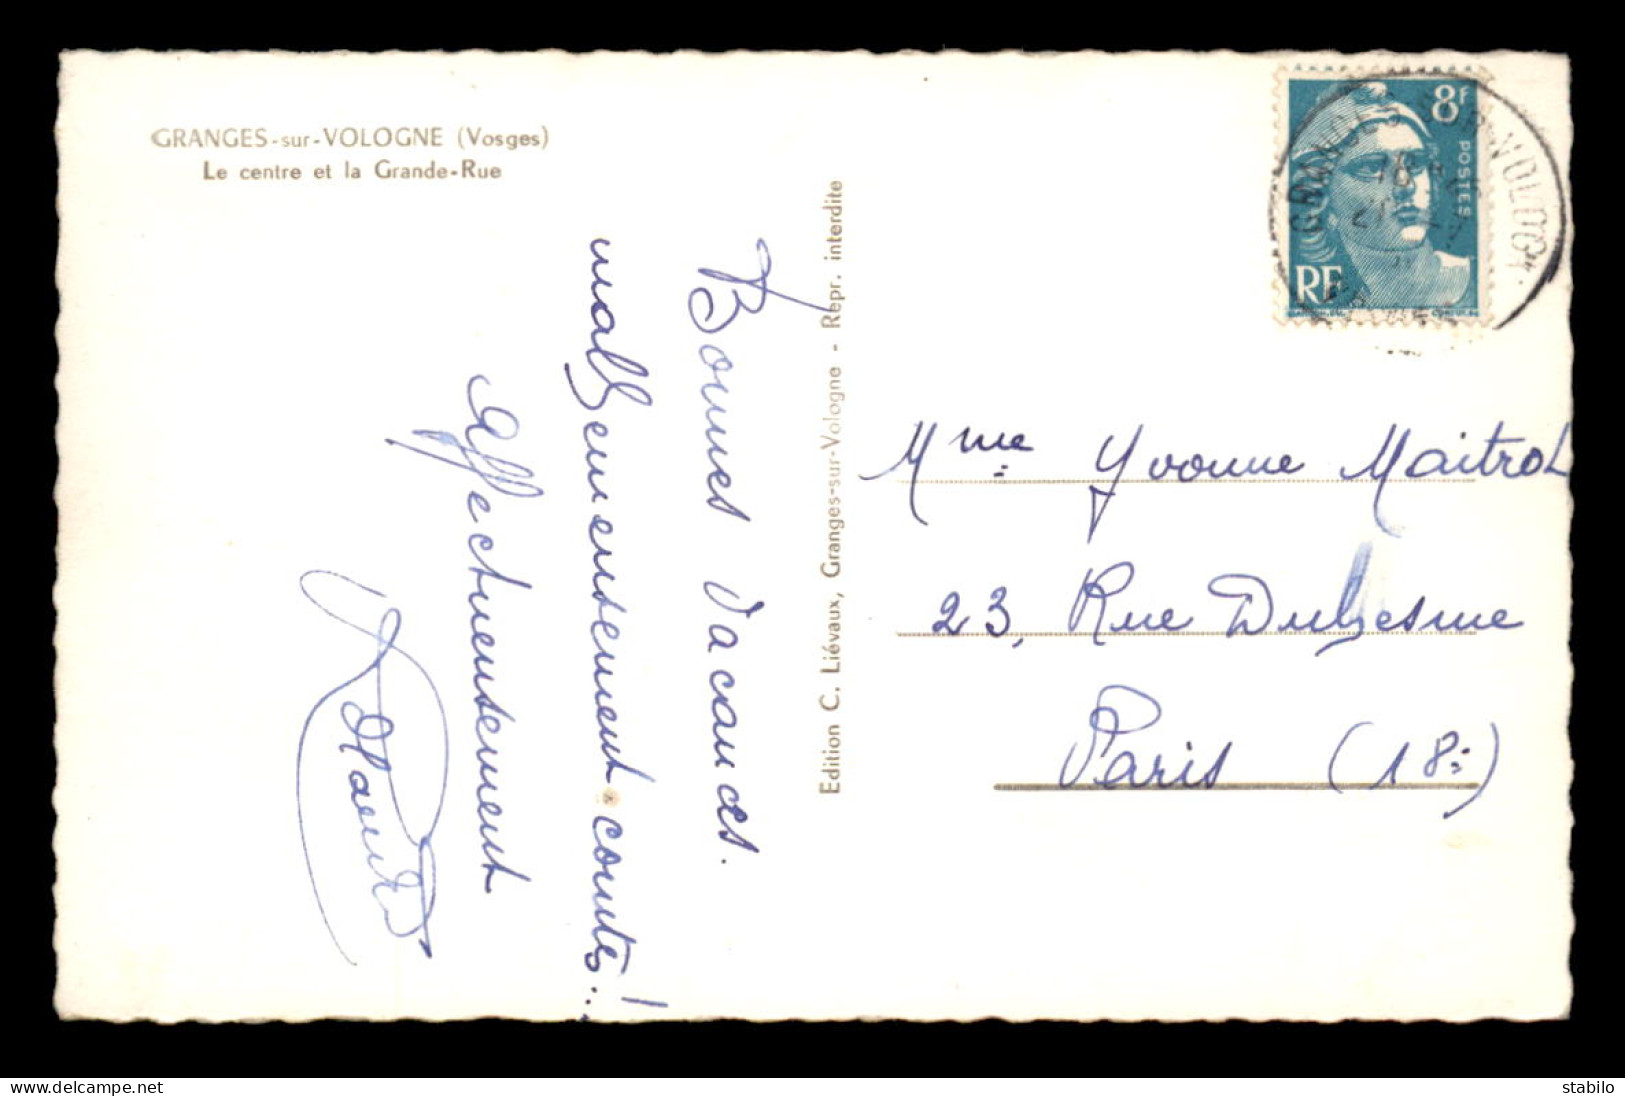 GRANGES-sur-VOLOGNE (Vosges)
Le centre et la Grande-Rue
Bonnes vacances.
malheureusement courtes..!
Affectueusement
Edition C. Liévaux, Granges-sur-Vologne - Repr. interdite
8F
POSTES
RF
GRANGES SUR VOLOGNE
18
Mme Yvonne Maitrot
23, Rue Duhesme
Paris (18e)
www.delcampe.net
stabilo